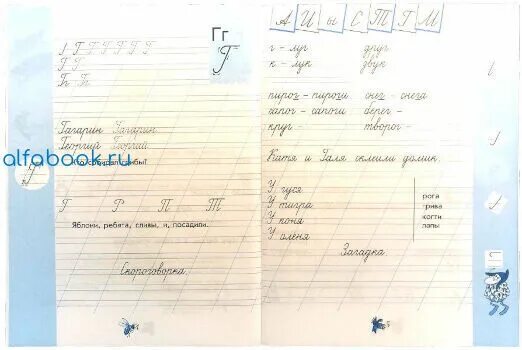 Гг
Г
Г Г Г Г Г Г Г
Г Г
Гг Гг
Гагарин Гагарин
Георгий Георгий
alfabook.ru
Кто собирал грибы?
Г Р П Т
Яблони, ребята, сливы, и, посадили.
Скороговорка.
А И Ы С Т Г М
г – луг друг
к – лук звук
пирог – пироги снег – снега
сапог – сапоги берег –
круг – творог –
Катя и Галя склеили домик.
У гуся рога
У тигра грива
У коня когти
У оленя лапы
Загадка.